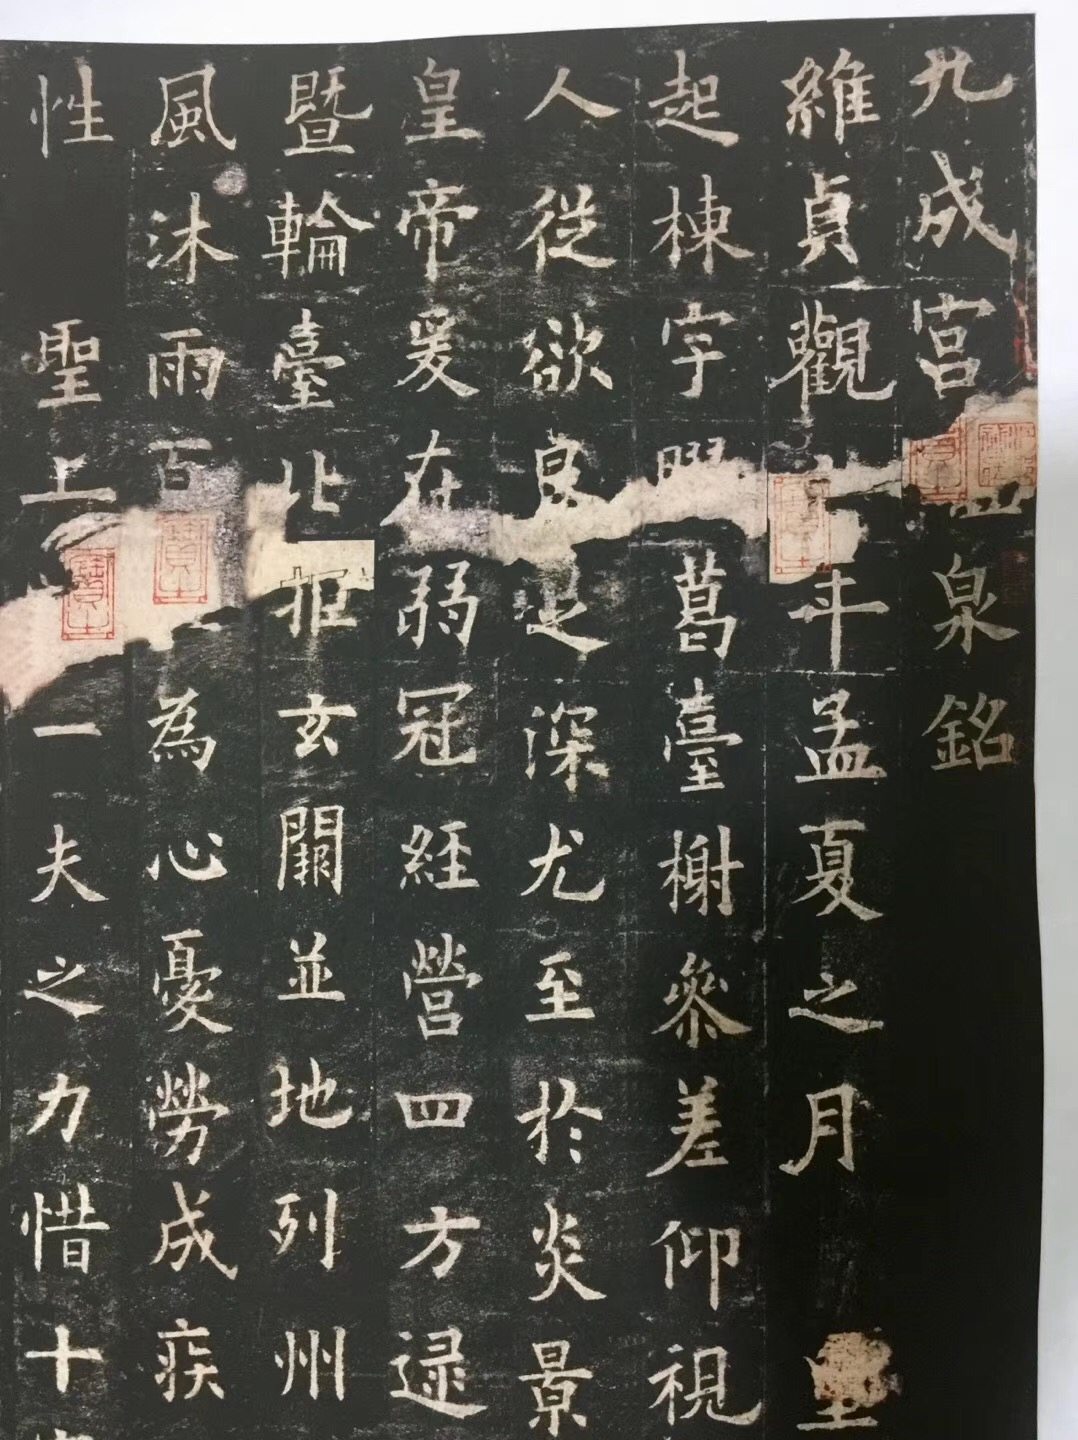 九成宮泉銘
維貞觀年孟夏之月
起棟宇葛臺榭參差仰視
人從欲良足深尤至於炎景
皇帝爰在弱冠經營四方逮
暨輪臺北拒玄闕並地列州
風沐雨百為心憂勞成疾
性聖上一夫之力惜十